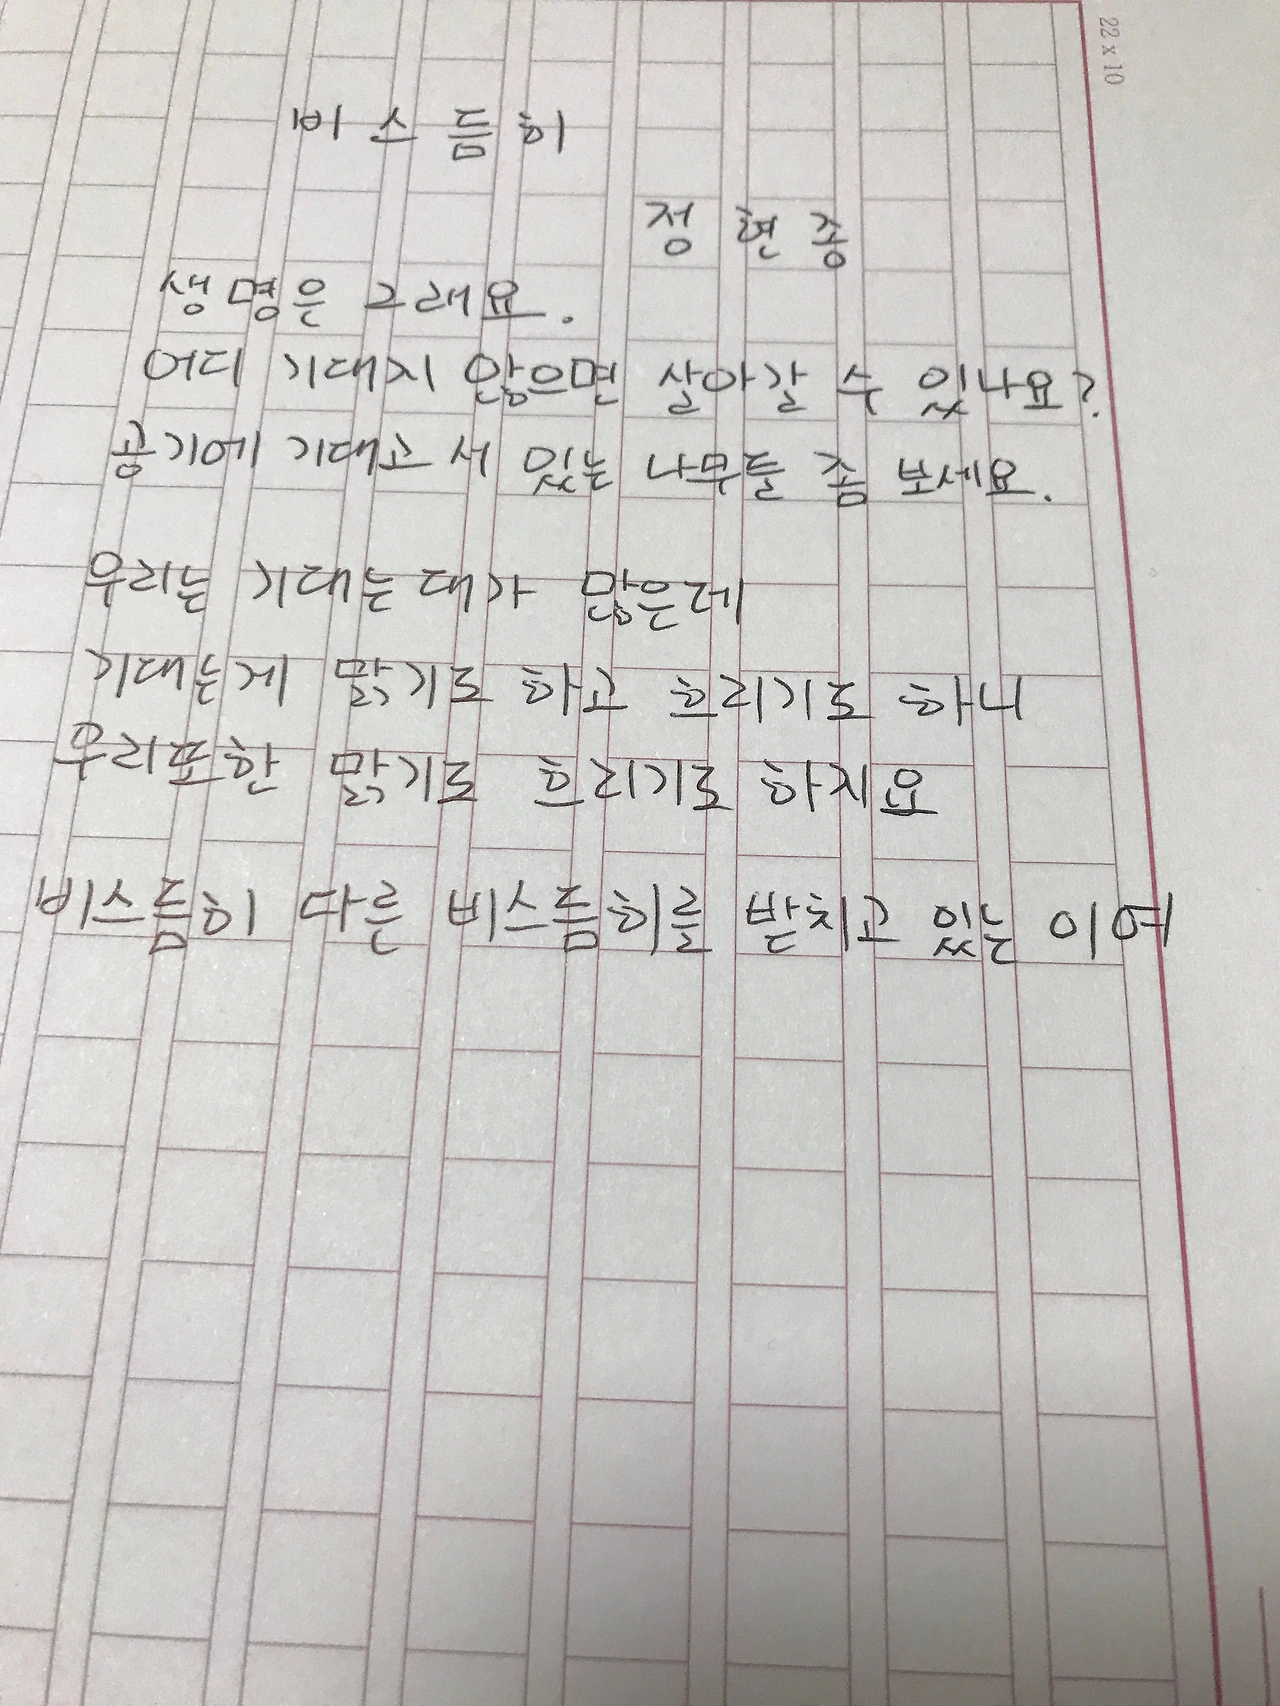 22 x 10
비스듬히
정현종
생명은 그래요.
어디 기대지 않으면 살아갈 수 있나요?
공기에 기대고 서 있는 나무들 좀 보세요.
우리는 기대는 대가 많은데
기대는게 맑기도 하고 흐리기도 하니
우리또한 맑기도 흐리기도 하지요
비스듬히 다른 비스듬히를 받치고 있는 이여